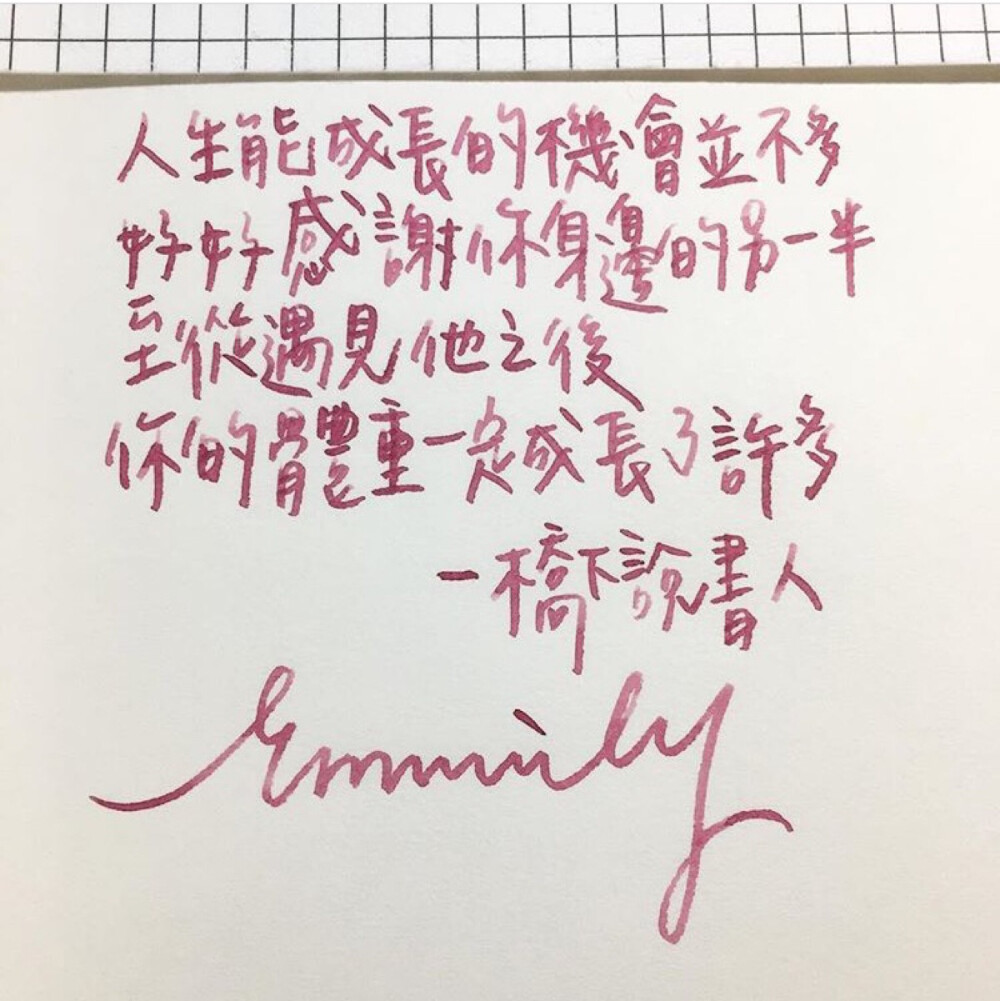 人生能成長的機會並不多
好好感謝你身邊的另一半
至從遇見他之後
你的體重一定成長了許多
-橋下說書人
Emmily